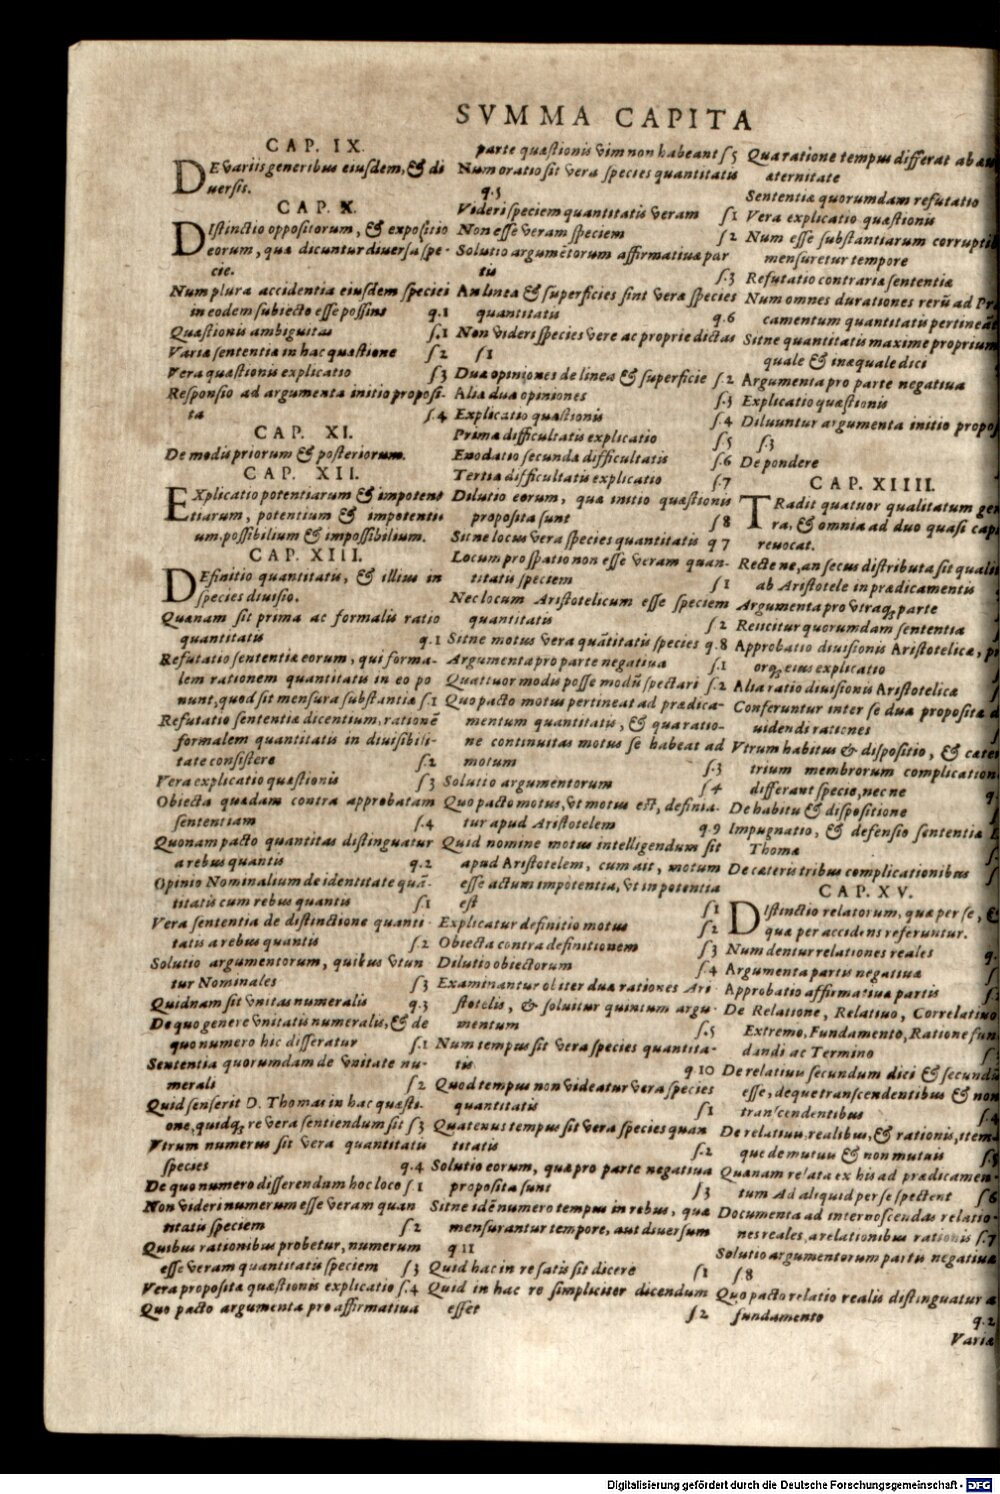 SVMMA CAPITA
CAP. IX.
DE variis generibus eiusdem, & di
uersis.
CAP. X.
DIstinctio oppositorum, & expositio
eorum, quæ dicuntur diuersa spe-
cie.
Num plura accidentia eiusdem speciei
in eodem subiecto esse possint q.1
Quæstionis ambiguitas ſ.1
Variæ sententiæ in hac quæstione ſ2
Vera quæstionis explicatio ſ3
Responsio ad argumenta initio proposi-
ta ſ.4
CAP. XI.
De modis priorum & posteriorum.
CAP. XII.
EXplicatio potentiarum & impoten-
tiarum, potentium & impotenti-
um, possibilium & impossibilium.
CAP. XIII.
DEfinitio quantitatis, & illius in
species diuisio.
Quænam sit prima ac formalis ratio
quantitatis q.1
Refutatio sententiæ eorum, qui forma-
lem rationem quantitatis in eo po
nunt, quod sit mensura substantiæ ſ.1
Refutatio sententiæ dicentium, rationē
formalem quantitatis in diuisibili-
tate consistere ſ.2
Vera explicatio quæstionis ſ3
Obiecta quædam contra approbatam
sententiam ſ.4
Quonam pacto quantitas distinguatur
a rebus quantis q.2
Opinio Nominalium de identitate quā-
titatis cum rebus quantis ſ1
Vera sententia de distinctione quanti-
tatis a rebus quantis ſ.2
Solutio argumentorum, quibus vtun
tur Nominales ſ3
Quidnam sit vnitas numeralis q.3
De quo genere vnitatis numeralis, & de
quo numero hic disseratur ſ.1
Sententia quorumdam de vnitate nu-
merali ſ2
Quid senserit D. Thomas in hac quæsti-
one, quidq; re vera sentiendum sit ſ3
Vtrum numerus sit vera quantitatis
species q.4
De quo numero disserendum hoc loco ſ.1
Non videri numerum esse veram quan
titatis speciem ſ2
Quibus rationibus probetur, numerum
esse veram quantitatis speciem ſ3
Vera propositæ quæstionis explicatio ſ.4
Quo pacto argumenta pro affirmatiua
parte quæstionis vim non habeant ſ5
Num oratio sit vera species quantitatis
q.5
Videri speciem quantitatis veram ſ1
Non esse veram speciem ſ2
Solutio argumētorum affirmatiuæ par
tis ſ.3
An linea & superficies sint veræ species
quantitatis q.6
Non videri species vere ac proprie dictas
ſ1
Duæ opiniones de linea & superficie ſ.2
Aliæ duæ opiniones ſ.3
Explicatio quæstionis ſ.4
Primæ difficultatis explicatio ſ5
Enodatio secundæ difficultatis ſ.6
Tertiæ difficultatis explicatio ſ.7
Dilutio eorum, quæ initio quæstionis
proposita sunt ſ8
Sitne locus vera species quantitatis q7
Locum pro spatio non esse veram quan-
titatis speciem ſ1
Nec locum Aristotelicum esse speciem
quantitatis ſ2
Sitne motus vera quātitatis species q.8
Argumenta pro parte negatiua ſ.1
Quattuor modis posse modū spectari ſ.2
Quo pacto motus pertineat ad prædica-
mentum quantitatis, & qua ratio-
ne continuitas motus se habeat ad
motum ſ.3
Solutio argumentorum ſ4
Quo pacto motus, vt motus est, definia-
tur apud Aristotelem q.9
Quid nomine motus intelligendum sit
apud Aristotelem, cum ait, motum
esse actum impotentia, vt in potentia
est ſ1
Explicatur definitio motus ſ2
Obiecta contra definitionem ſ3
Dilutio obiectorum ſ.4
Examinantur obiter duæ rationes Ari-
stotelis, & soluitur quintum argu-
mentum ſ.5
Num tempus sit vera species quantita-
tis q 10
Quod tempus non videatur vera species
quantitatis ſ1
Quatenus tempus sit vera species quan
titatis ſ.2
Solutio eorum, quæ pro parte negatiua
proposita sunt ſ3
Sitne idē numero tempus in rebus, quæ
mensurantur tempore, aut diuersum
q 11
Quid hac in re satis sit dicere ſ1
Quid in hac re simpliciter dicendum
esset ſ2
Qua ratione tempus differat ab
æternitate
Sententia quorumdam refutatio
Vera explicatio quæstionis
Num esse substantiarum corrupti
mensuretur tempore
Refutatio contrariæ sententiæ
Num omnes durationes rerū ad Pr
camentum quantitatis pertineāt
Sitne quantitatis maxime proprium
quale & inæquale dici
Argumenta pro parte negatiua
Explicatio quæstionis
Diluuntur argumenta initio propo
ſ.3
De pondere
CAP. XIIII.
TRadit quatuor qualitatum ge
ra, & omnia ad duo quasi cap
reuocat.
Recte ne, an secus distributa sit quali
ab Aristotele in prædicamentis
Argumenta pro vtraq; parte
Reiicitur quorumdam sententia
Approbatio diuisionis Aristotelicæ, p
orq; eius explicatio
Alia ratio diuisionis Aristotelicæ
Conferuntur inter se duæ propositæ d
uidendi rationes
Vtrum habitus & dispositio, & cæte
trium membrorum complication
differant specie, nec ne q.
De habitu & dispositione
Impugnatio, & defensio sententiæ
Thomæ
De cæteris tribus complicationibus
CAP. XV.
DIstinctio relatorum, quæ per se, &
quæ per accidens referuntur.
Num dentur relationes reales q.
Argumenta partis negatiuæ
Approbatio affirmatiuæ partis
De Relatione, Relatiuo, Correlatiuo
Extremo, Fundamento, Ratione fun
dandi ac Termino
De relatiuis secundum dici & secundū
esse, deque transcendentibus & non
transcendentibus ſ.4
De relatiuis realibus, & rationis, item
que de mutuis & non mutuis ſ.5
Quænam relata ex his ad prædicamen-
tum Ad aliquid per se spectent ſ6
Documenta ad internoscendas relatio-
nes reales, a relationibus rationis ſ.7
Solutio argumentorum partis negatiuæ
ſ8
Quo pacto relatio realis distinguatur a
fundamento q.2
Variæ
Digitalisierung gefördert durch die Deutsche Forschungsgemeinschaft - DFG